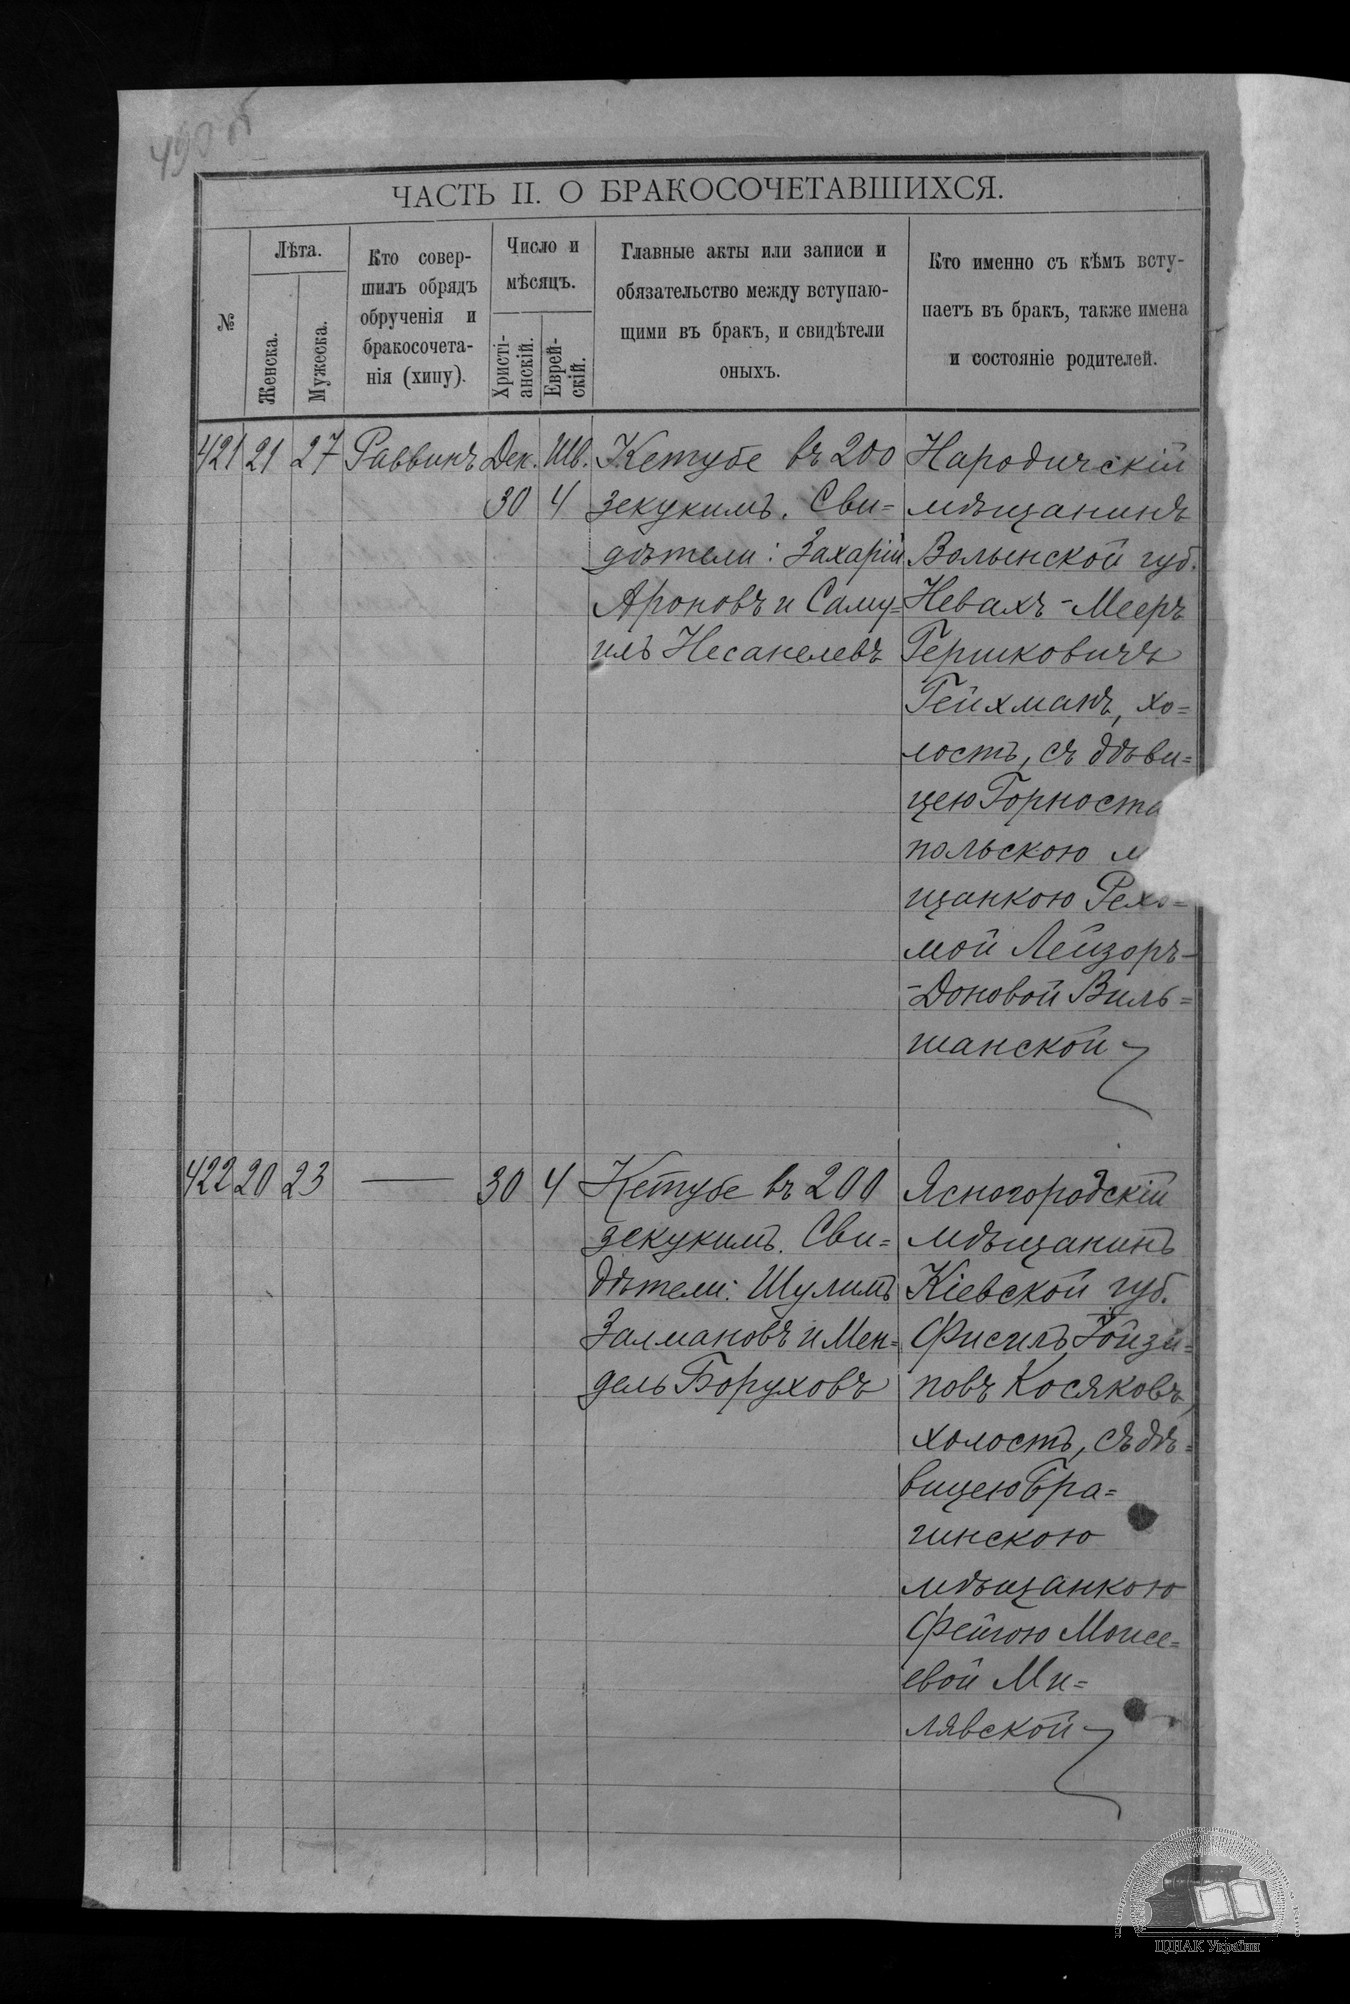 490 об
ЧАСТЬ II. О БРАКОСОЧЕТАВШИХСЯ.
№
Лѣта.
Женска.
Мужеска.
Кто совер-
шилъ обрядъ
обрученія и
бракосочета-
нія (хипу).
Число и
мѣсяцъ.
Христі-
анскій.
Еврей-
скій.
Главные акты или записи и
обязательство между вступаю-
щими въ бракъ, и свидѣтели
оныхъ.
Кто именно съ кѣмъ всту-
паетъ въ бракъ, также имена
и состояніе родителей.
421 21 27 Раввинъ Дек. 30 Шв. 4
Кетубе въ 200
зекукимъ. Сви=
дѣтели: Захарій
Ароновъ и Саму=
илъ Несанелевъ
Народичскій
мѣщанинъ
Волынской губ.
Невахъ-Мееръ
Гершковичъ
Гейхманъ, хо=
лостъ, съ дѣви=
цею Горноста
польскою м
щанкою Рехо=
мой Лейзоръ-
-Доновой Виль=
шанской
422 20 23 — 30 4
Кетубе въ 200
зекукимъ. Сви=
дѣтели: Шулимъ
Залмановъ и Мен=
дель Боруховъ
Ясногородскій
мѣщанинъ
Кіевской губ.
Фисилъ
повъ Косяковъ,
холостъ, съ дѣ=
вицею Бра=
гинскою
мѣщанкою
Фейгою Моисе=
евой Ми=
лявской
ЦДІАК України